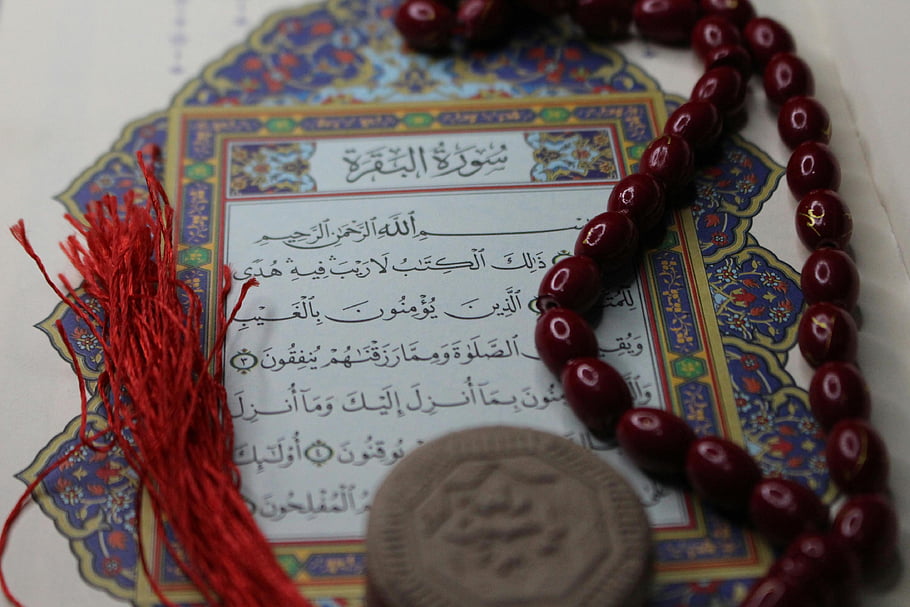 سُورَةُ البَقَرَةِ
ٱللَّهِ ٱلرَّحْمَٰنِ ٱلرَّحِيمِ
ذَٰلِكَ ٱلْكِتَٰبُ لَا رَيْبَ ۛ فِيهِ ۛ هُدًى
ٱلَّذِينَ يُؤْمِنُونَ بِٱلْغَيْبِ
ٱلصَّلَوٰةَ وَمِمَّا رَزَقْنَٰهُمْ يُنفِقُونَ ٣
بِمَآ أُنزِلَ إِلَيْكَ وَمَآ أُنزِلَ
يُوقِنُونَ ٤ أُو۟لَٰٓئِكَ
ٱلْمُفْلِحُونَ